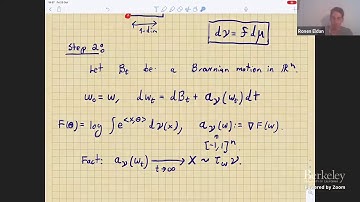 1-dim
dν = f dμ
Step 2:
Let B_t be a Brownian motion in ℝⁿ.
w_0 = w, dw_t = dB_t + a_ν(w_t) dt
F(θ) = log ∫ e^{<x,θ>} dν(x), a_ν(w) := ∇F(w).
[-1,1]ⁿ
Fact: a_ν(w_t) ⟶ X ~ τ_w ν.
t→∞
Ronen Eldan
Berkeley
Powered by Zoom